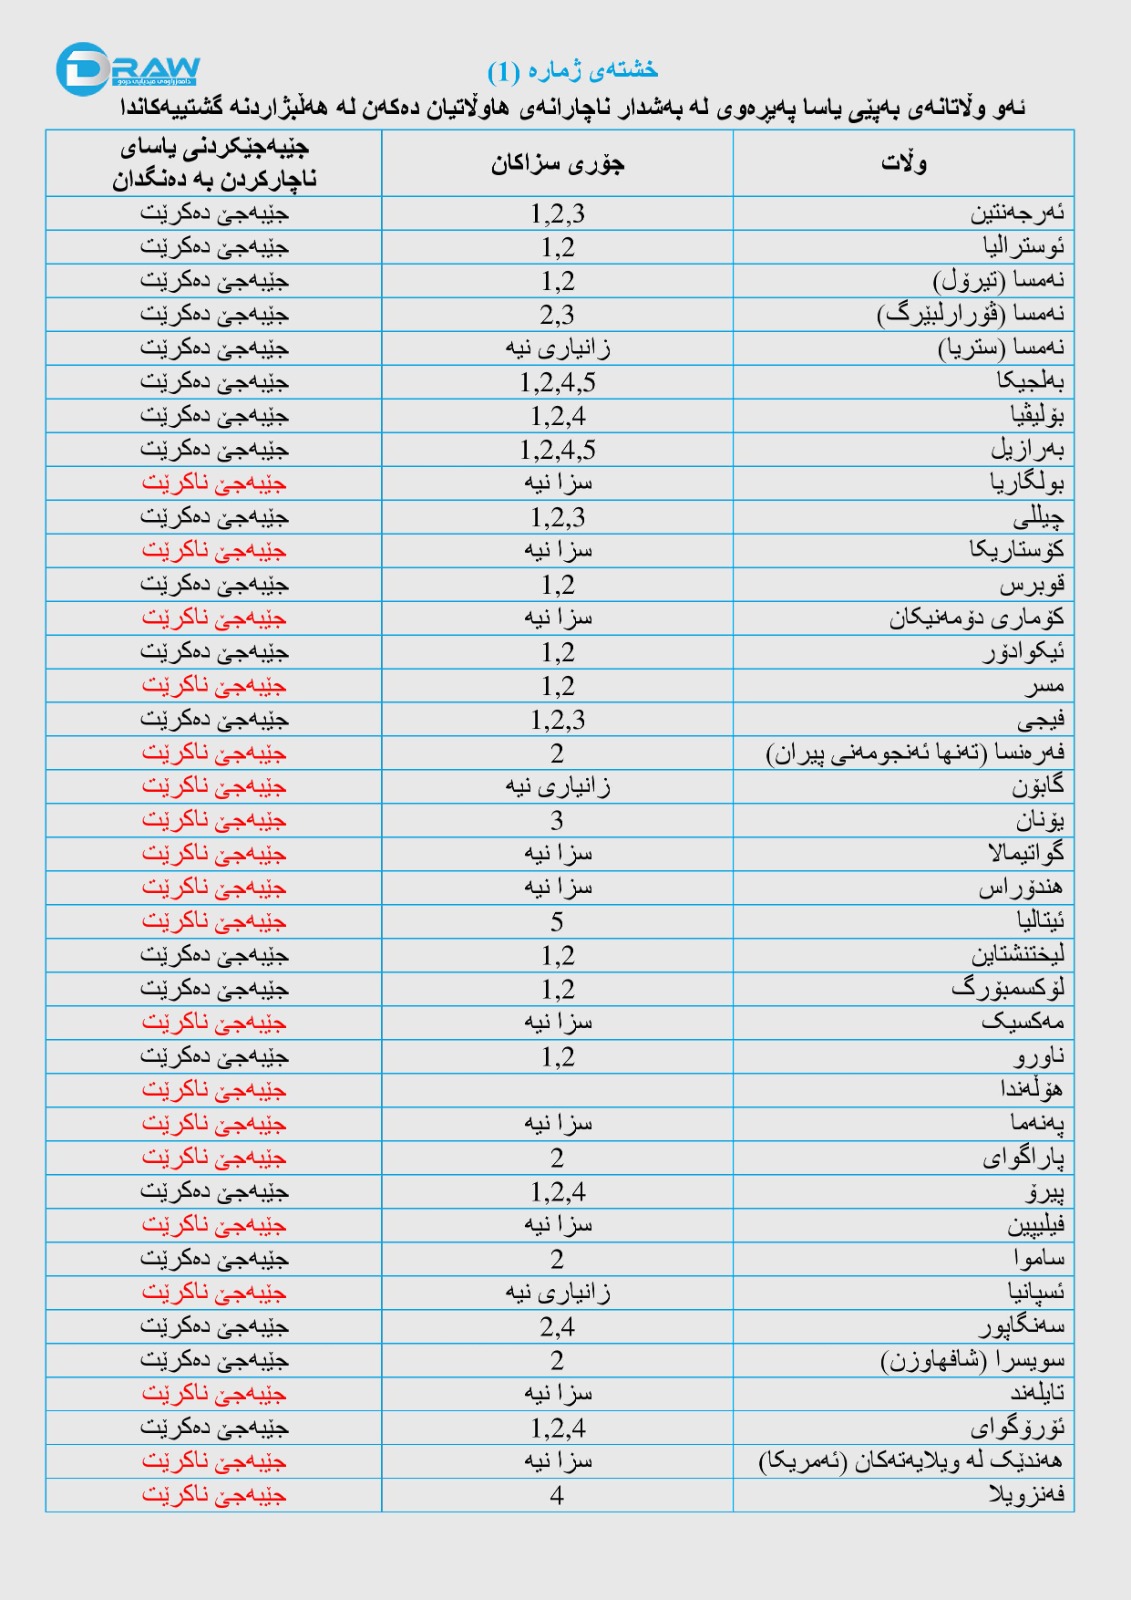 DRAW
خشتەی ژمارە (1)
ئەو وڵاتانەی بەپێی یاسا پەیڕەوی لە بەشدار ناچارانەی هاوڵاتیان دەکەن لە هەڵبژاردنە گشتییەکاندا
وڵات	جۆری سزاکان	جێبەجێکردنی یاسای ناچارکردن بە دەنگدان
ئەرجەنتین	1,2,3	جێبەجێ دەکرێت
ئوسترالیا	1,2	جێبەجێ دەکرێت
نەمسا (تیرۆل)	1,2	جێبەجێ دەکرێت
نەمسا (ڤۆرارلبێرگ)	2,3	جێبەجێ دەکرێت
نەمسا (ستریا)	زانیاری نیە	جێبەجێ دەکرێت
بەلجیکا	1,2,4,5	جێبەجێ دەکرێت
بۆلیڤیا	1,2,4	جێبەجێ دەکرێت
بەرازیل	1,2,4,5	جێبەجێ دەکرێت
بولگاریا	سزا نیە	جێبەجێ ناکرێت
چیللی	1,2,3	جێبەجێ دەکرێت
کۆستاریکا	سزا نیە	جێبەجێ ناکرێت
قوبرس	1,2	جێبەجێ دەکرێت
کۆماری دۆمەنیکان	سزا نیە	جێبەجێ ناکرێت
ئیکوادۆر	1,2	جێبەجێ دەکرێت
مسر	1,2	جێبەجێ ناکرێت
فیجی	1,2,3	جێبەجێ دەکرێت
فەرەنسا (تەنها ئەنجومەنی پیران)	2	جێبەجێ ناکرێت
گابۆن	زانیاری نیە	جێبەجێ ناکرێت
یۆنان	3	جێبەجێ ناکرێت
گواتیمالا	سزا نیە	جێبەجێ ناکرێت
هندۆراس	سزا نیە	جێبەجێ ناکرێت
ئیتالیا	5	جێبەجێ ناکرێت
لیختنشتاین	1,2	جێبەجێ دەکرێت
لۆکسمبۆرگ	1,2	جێبەجێ دەکرێت
مەکسیک	سزا نیە	جێبەجێ ناکرێت
ناورو	1,2	جێبەجێ دەکرێت
هۆڵەندا	جێبەجێ ناکرێت
پەنەما	سزا نیە	جێبەجێ ناکرێت
پاراگوای	2	جێبەجێ ناکرێت
پیرۆ	1,2,4	جێبەجێ دەکرێت
فیلیپین	سزا نیە	جێبەجێ ناکرێت
ساموا	2	جێبەجێ دەکرێت
ئسپانیا	زانیاری نیە	جێبەجێ ناکرێت
سەنگاپور	2,4	جێبەجێ دەکرێت
سویسرا (شافهاوزن)	2	جێبەجێ دەکرێت
تایلەند	سزا نیە	جێبەجێ ناکرێت
ئۆرۆگوای	1,2,4	جێبەجێ دەکرێت
هەندێک لە ویلایەتەکان (ئەمریکا)	سزا نیە	جێبەجێ ناکرێت
فەنزویلا	4	جێبەجێ ناکرێت